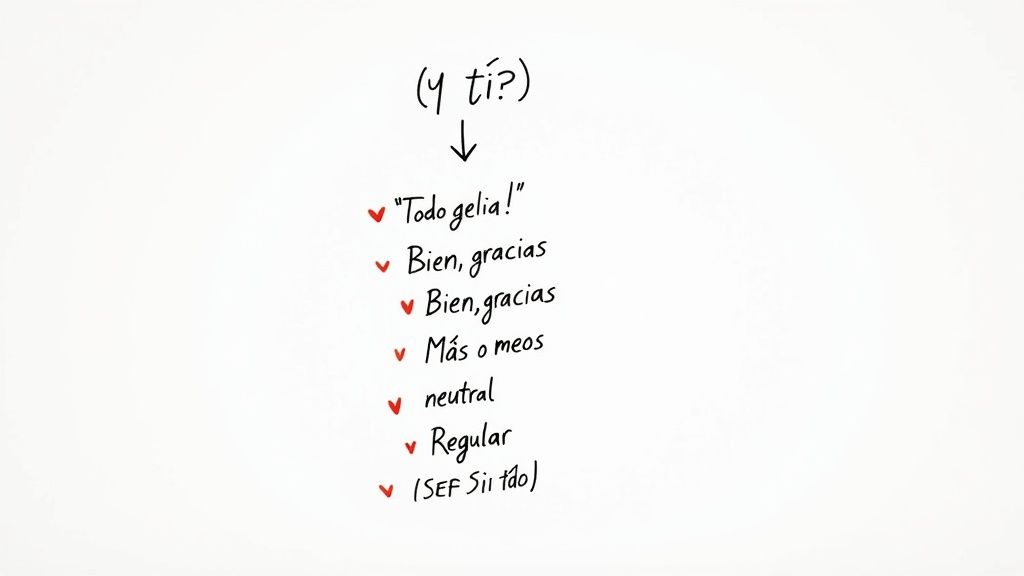 (y tí?)
"Todo gelia!"
Bien, gracias
Bien, gracias
Más o meos
neutral
Regular
(SEF Sii tão)